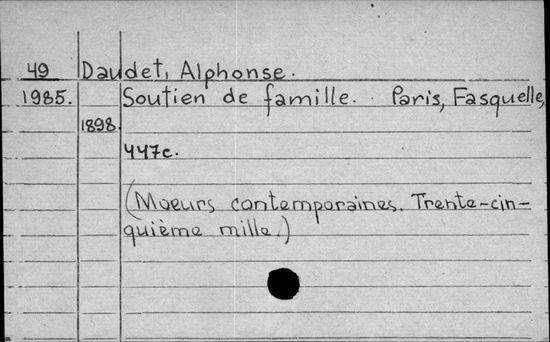 49 Daudet, Alphonse.
1985. Soutien de famille. Paris, Fasquelle,
1898.
447c.
(Moeurs contemporaines. Trente-cin-
quième mille.)